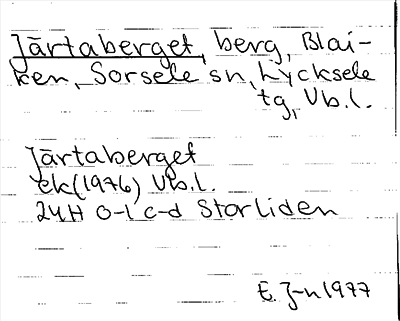 Järtaberget, berg, Blai-
ken, Sorsele sn, Lycksele
tg, Vb.l.
Järtaberget
ek(1976) Vb.l.
24H 0-1 c-d Storliden
E. J-n 1977